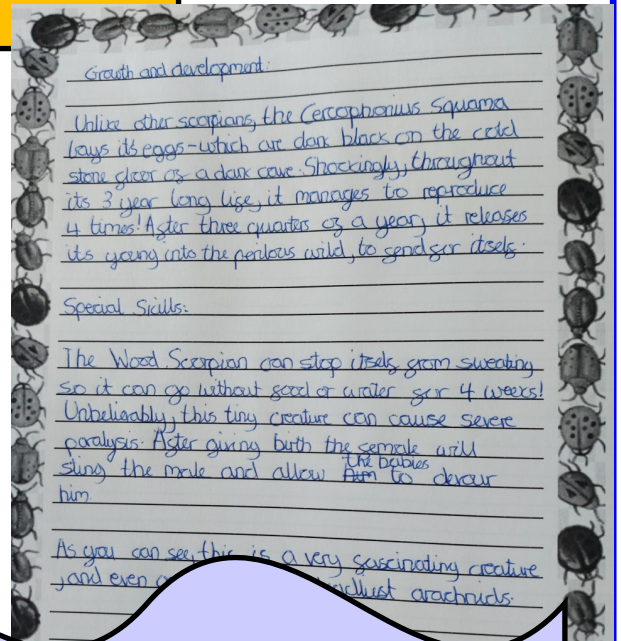 Growth and development:
Unlike other scorpians, the Cercophonius Squama
lays its eggs-which are dark black on the cold
stone floor of a dark cave. Shockingly, throughout
its 3 year long life, it manages to reproduce
4 times! After three quarters of a year, it releases
its young into the perilous wild, to fend for itself.
Special Skills:
The Wood Scorpian can stop itself from sweating
so it can go without food or water for 4 weeks!
Unbelivably, this tiny creature can cause severe
paralysis. After giving birth the female will
sting the male and allow the babies to devour
him.
As you can see, this is a very fascinating creature
, and even arachnids.